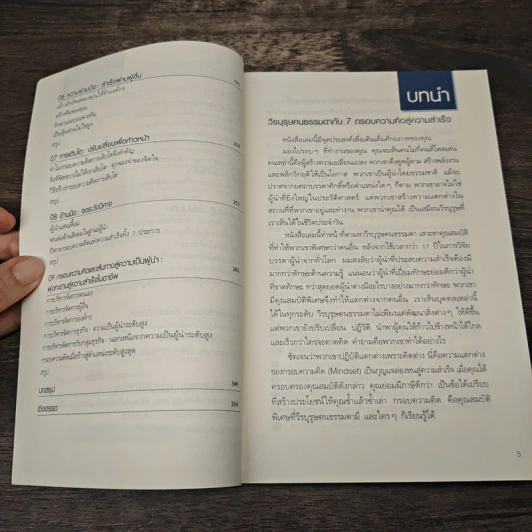 06 ความร่วมมือ: สำเร็จผ่านผู้อื่น
สรุป
07 การเติบโต: ปรับเปลี่ยนเพื่อก้าวหน้า
สรุป
08 ด้านมืด: จงระวังปีศาจ
สรุป
09 กรอบความคิดและเส้นทางสู่ความเป็นผู้นำ:
การบริหารจัดการตนเอง
การบริหารจัดการผู้อื่น
การบริหารจัดการองค์กร
การบริหารจัดการธุรกิจ ความเป็นผู้นำระดับสูง
สรุป
บทสรุป
เชิงอรรถ
บทนำ
วีรบุรุษคนธรรมดากับ 7 กรอบความคิดสู่ความสำเร็จ
หนังสือเล่มนี้มีจุดประสงค์เพื่อเติมเต็มศักยภาพของคุณ
มองไปรอบๆ ที่ทำงานของคุณ คุณจะเห็นคนไม่กี่คนที่โดดเด่น
คนเหล่านี้คือผู้สร้างความเปลี่ยนแปลง พวกเขาดึงดูดผู้ตาม สร้างพลังงาน
และพลิกวิกฤติให้เป็นโอกาส พวกเขาเป็นผู้นำโดยธรรมชาติ แม้จะ
ปราศจากยศถาบรรดาศักดิ์หรือตำแหน่งใดๆ ก็ตาม พวกเขาอาจไม่ใช่
ผู้นำที่ยิ่งใหญ่ในประวัติศาสตร์ แต่พวกเขาสร้างความแตกต่างใน
สถานที่ที่พวกเขาอยู่และทำงาน พวกเขาน่าคุณได้ เป็นเสมือนวีรบุรุษที่
เราเห็นได้ในชีวิตประจำวัน
หนังสือเล่มนี้ทำหน้าที่ตามหาวีรบุรุษคนธรรมดา เสาะหาคุณสมบัติ
ที่ทำให้พวกเขาพิเศษกว่าคนอื่น หลังจากใช้เวลากว่า 17 ปีในการวิจัย
บรรดาผู้นำจากทั่วโลก ผมสงสัยว่าผู้นำที่ประสบความสำเร็จต้องมี
มากกว่าทักษะด้านความรู้ แน่นอนว่าผู้นำที่เปี่ยมทักษะย่อมดีกว่าผู้นำ
ที่ขาดทักษะ ทว่าสุดยอดผู้นำต่างมีอะไรบางอย่างมากกว่าทักษะ พวกเขา
มีคุณสมบัติพิเศษซึ่งทำให้แตกต่างจากคนอื่น เราเห็นบุคคลเหล่านี้
ได้ในทุกระดับ วีรบุรุษคนธรรมดาไม่เพียงแค่พัฒนาสิ่งต่างๆ ให้ดีขึ้น
แต่พวกเขายังปรับเปลี่ยน ปฏิวัติ นำพาผู้คนให้ก้าวไปข้างหน้าได้ไกล
และเร็วกว่าใครจะคาดคิด คำถามคือพวกเขาทำได้อย่างไร
ชัดเจนว่าพวกเขาปฏิบัติแตกต่างเพราะคิดต่าง นี่คือความแตกต่าง
ของกรอบความคิด (Mindset) เป็นกุญแจล่องหนสู่ความสำเร็จ เมื่อคุณได้
ครอบครองคุณสมบัติดังกล่าว คุณย่อมมีภาษีดีกว่า เป็นข้อได้เปรียบ
ที่สร้างประโยชน์ให้คุณซ้ำแล้วซ้ำเล่า กรอบความคิด คือคุณสมบัติ
พิเศษที่วีรบุรุษคนธรรมดามี และใครๆ ก็เรียนรู้ได้
5